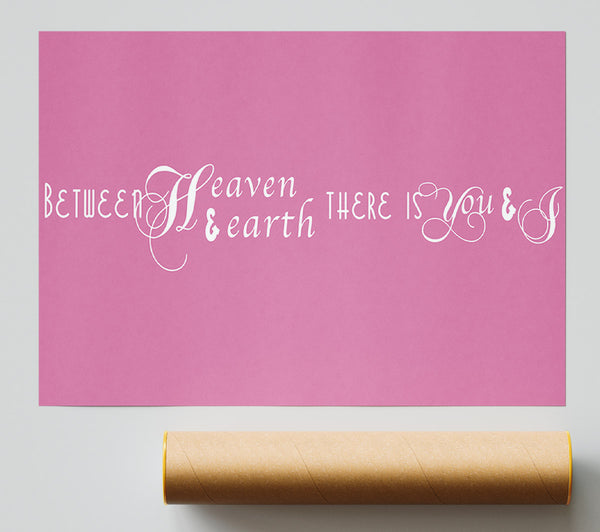 BETWEEN Heaven & earth THERE IS You & I